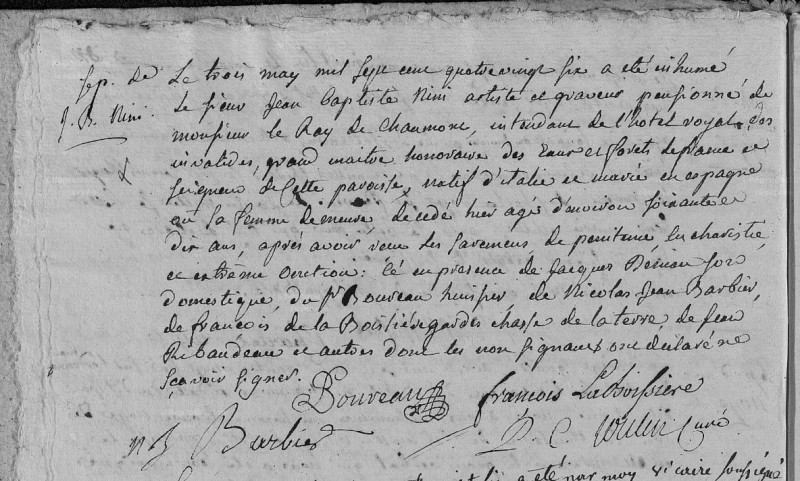 sep. de
J. B. Nini.
Le trois may mil sept cent quatrevingt six a eté inhumé
Le sieur Jean Baptiste Nini artiste et graveur pensionné de
monsieur le Ray de Chaumont, intendant de l'hotel royal des
invalides, grand maitre honoraire des Eaux et forets de france et
seigneur de Cette paroisse, natif d'italie et marié en espagne
ou sa femme demeure, decedé hier agé d'environ soixante et
dix ans, aprés avoir recu les sacremens de penitence Eucharistie
et extrême onction: en presence de Jacques
domestique, du Sr Bouveau huissier de Nicolas Jean Barbier,
de francois de la Boissiére gardes chasse de la terre, de Jean
Ribaudeau et autres dont les non signants ont declaré ne
sçavoir signer.
Bouveau francois Laboissiere
n j Barbier curé
eté par moy vicaire soussigné